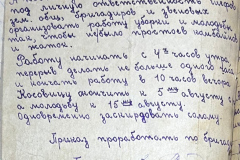 под личную ответственность
чем обяз. бригадиров и звеньевых
организовать работу уборки и молотьбы
так, чтобы небыло простоев комбайнов
и жаток.
Работу начинать с 4х часов утра,
перерыв делать не больше одного часа
и кончать работу в 10 часов вечера.
Косовицу окончить к 5му августу
а молодьбу к 15му августу
одновременно заскирдовать солому.
Приказ проработать по бригадам